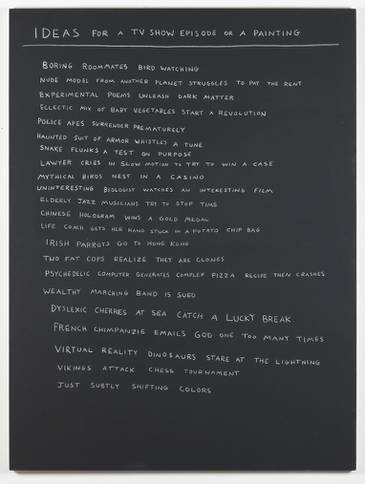 IDEAS FOR A TV SHOW EPISODE OR A PAINTING
BORING ROOMMATES BIRD WATCHING
NUDE MODEL FROM ANOTHER PLANET STRUGGLES TO PAY THE RENT
EXPERIMENTAL POEMS UNLEASH DARK MATTER
ECLECTIC MIX OF BABY VEGETABLES START A REVOLUTION
POLICE APES SURRENDER PREMATURELY
HAUNTED SUIT OF ARMOR WHISTLES A TUNE
SNAKE FLUNKS A TEST ON PURPOSE
LAWYER CRIES IN SLOW MOTION TO TRY TO WIN A CASE
MYTHICAL BIRDS NEST IN A CASINO
UNINTERESTING BIOLOGIST WATCHES AN INTERESTING FILM
ELDERLY JAZZ MUSICIANS TRY TO STOP TIME
CHINESE HOLOGRAM WINS A GOLD MEDAL
LIFE COACH GETS HER HAND STUCK IN A POTATO CHIP BAG
IRISH PARROTS GO TO HONG KONG
TWO FAT COPS REALIZE THEY ARE CLONES
PSYCHEDELIC COMPUTER GENERATES COMPLEX PIZZA RECIPE THEN CRASHES
WEALTHY MARCHING BAND IS SUED
DYSLEXIC CHEFRES AT SEA CATCH A LUCKY BREAK
FRENCH CHIMPANZIE EMAILS GOD ONE TOO MANY TIMES
VIRTUAL REALITY DINOSAURS STARE AT THE LIGHTNING
VIKINGS ATTACK CHESS TOURNAMENT
JUST SUBTLY SHIFTING COLORS